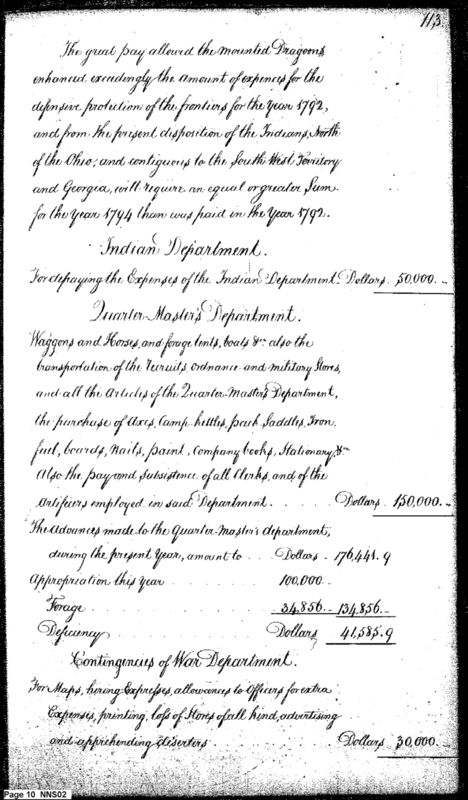 113
The great pay allowed the mounted Dragoons
enhanced exceedingly the amount of expences for the
defensive protection of the frontiers for the Year 1792,
and from the present disposition of the Indians, North
of the Ohio, and contiguous to the South West Territory
and Georgia, will require an equal or greater Sum
for the Year 1794 than was paid in the Year 1792.
Indian Department.
For defraying the Expenses of the Indian Department. Dollars. 50,000.--
Quarter-Master's Department.
Waggons and Horses, and forage tents, boats &ca also the
transportation of the recruits ordnance and military Stores,
and all the Articles of the Quarter-Master's Department,
the purchase of Axes, Camp-kettles, pack Saddles, Iron
fuel, boards, Nails, paint, Company books, Stationary, &ca
Also the pay and subsistence of all Clerks, and of the
Artificers employed in said Department . . . Dollars. 150,000.--
The advances made to the Quarter-Master's department,
during the present Year, amount to . . Dollars. 176,441.9
Appropriation this Year . . . . 100,000.--
Forage . . . . 34,856.-- 134,856.--
Deficiency Dollars 41,585.9
Contingencies of War Department.
For Maps, hiring Expresses, allowances to Officers for extra
Expenses, printing, loss of Stores of all kind, advertising
and apprehending deserters . . . Dollars 30,000.--
Page 10 NNS02